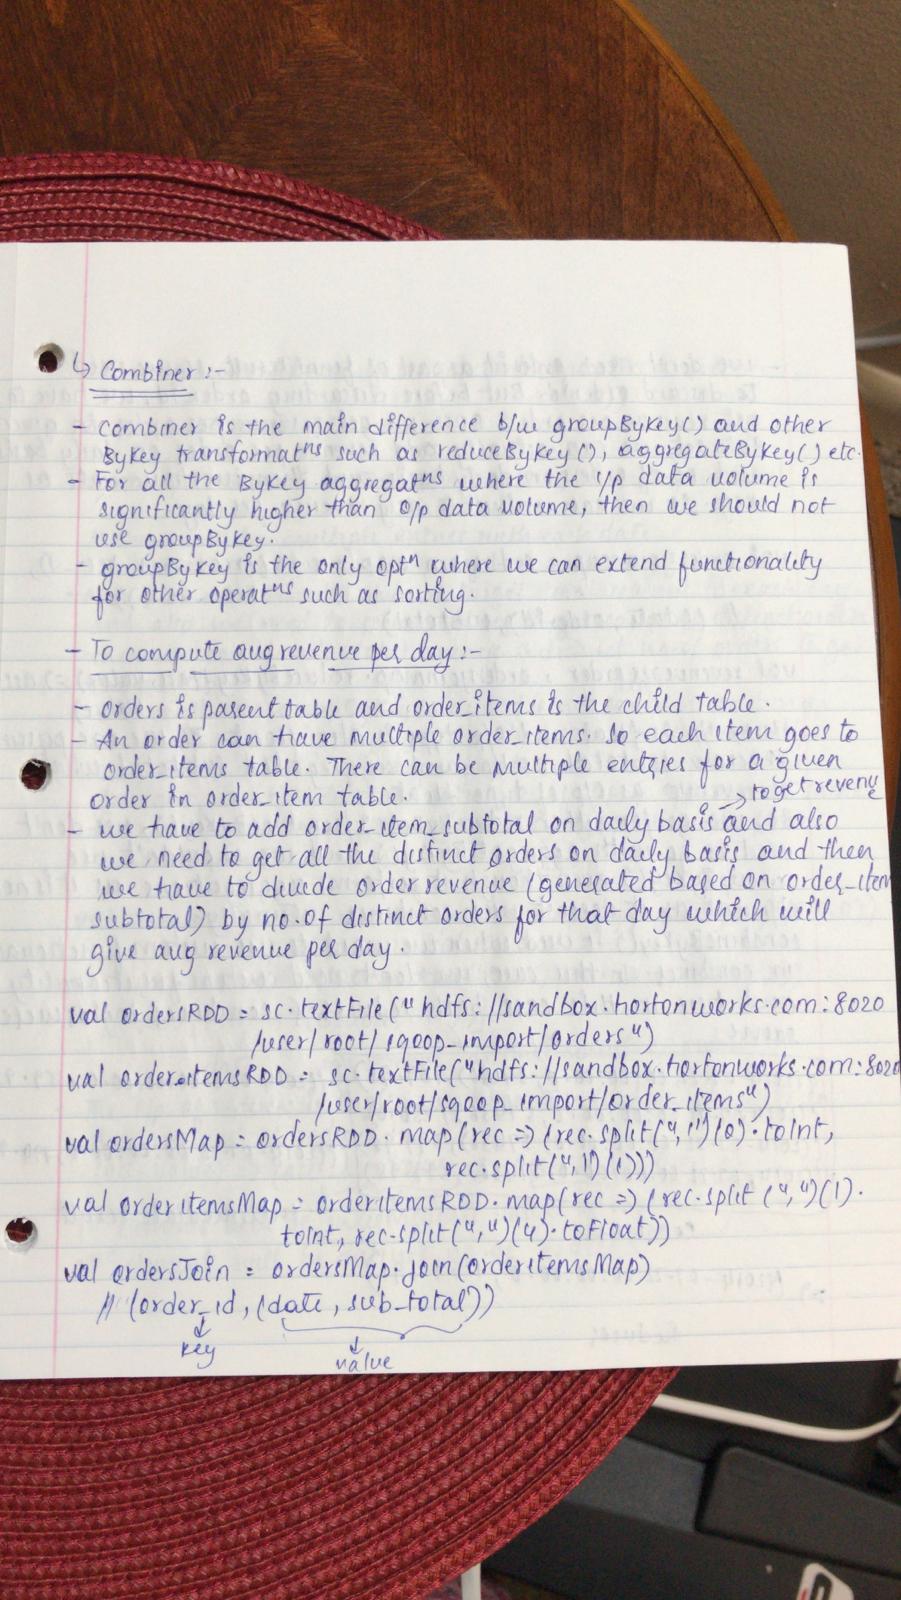 ↳ Combiner :-
- Combiner is the main difference b/w groupByKey() and other
ByKey transformatns such as reduceByKey(), aggregateByKey() etc.
- For all the ByKey aggregatns where the i/p data volume is
significantly higher than o/p data volume, then we should not
use groupByKey.
- groupByKey is the only optn where we can extend functionality
for other operatns such as sorting.
- To compute avg revenue per day :-
- orders is parent table and order_items is the child table.
- An order can have multiple order_items. so each item goes to
order_items table. There can be multiple entries for a given
order in order_item table.
→ to get revenue
- we have to add order_item_subtotal on daily basis and also
we need to get all the distinct orders on daily basis and then
we have to divide order revenue (generated based on order_item
subtotal) by no. of distinct orders for that day which will
give avg revenue per day.
val ordersRDD = sc.textFile("hdfs://sandbox.hortonworks.com:8020
/user/root/sqoop_import/orders")
val orderitemsRDD = sc.textFile("hdfs://sandbox.hortonworks.com:8020
/user/root/sqoop_import/order_items")
val ordersMap = ordersRDD.map(rec => (rec.split(",")(0).toInt,
rec.split(",")(1)))
val orderitemsMap = orderitemsRDD.map(rec => (rec.split(",")(1).
toInt, rec.split(",")(4).toFloat))
val ordersJoin = ordersMap.join(orderitemsMap)
// (order_id, (date, sub_total))
key
value